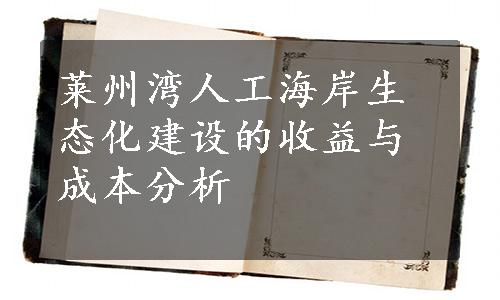 莱州湾人工海岸生
态化建设的收益与
成本分析